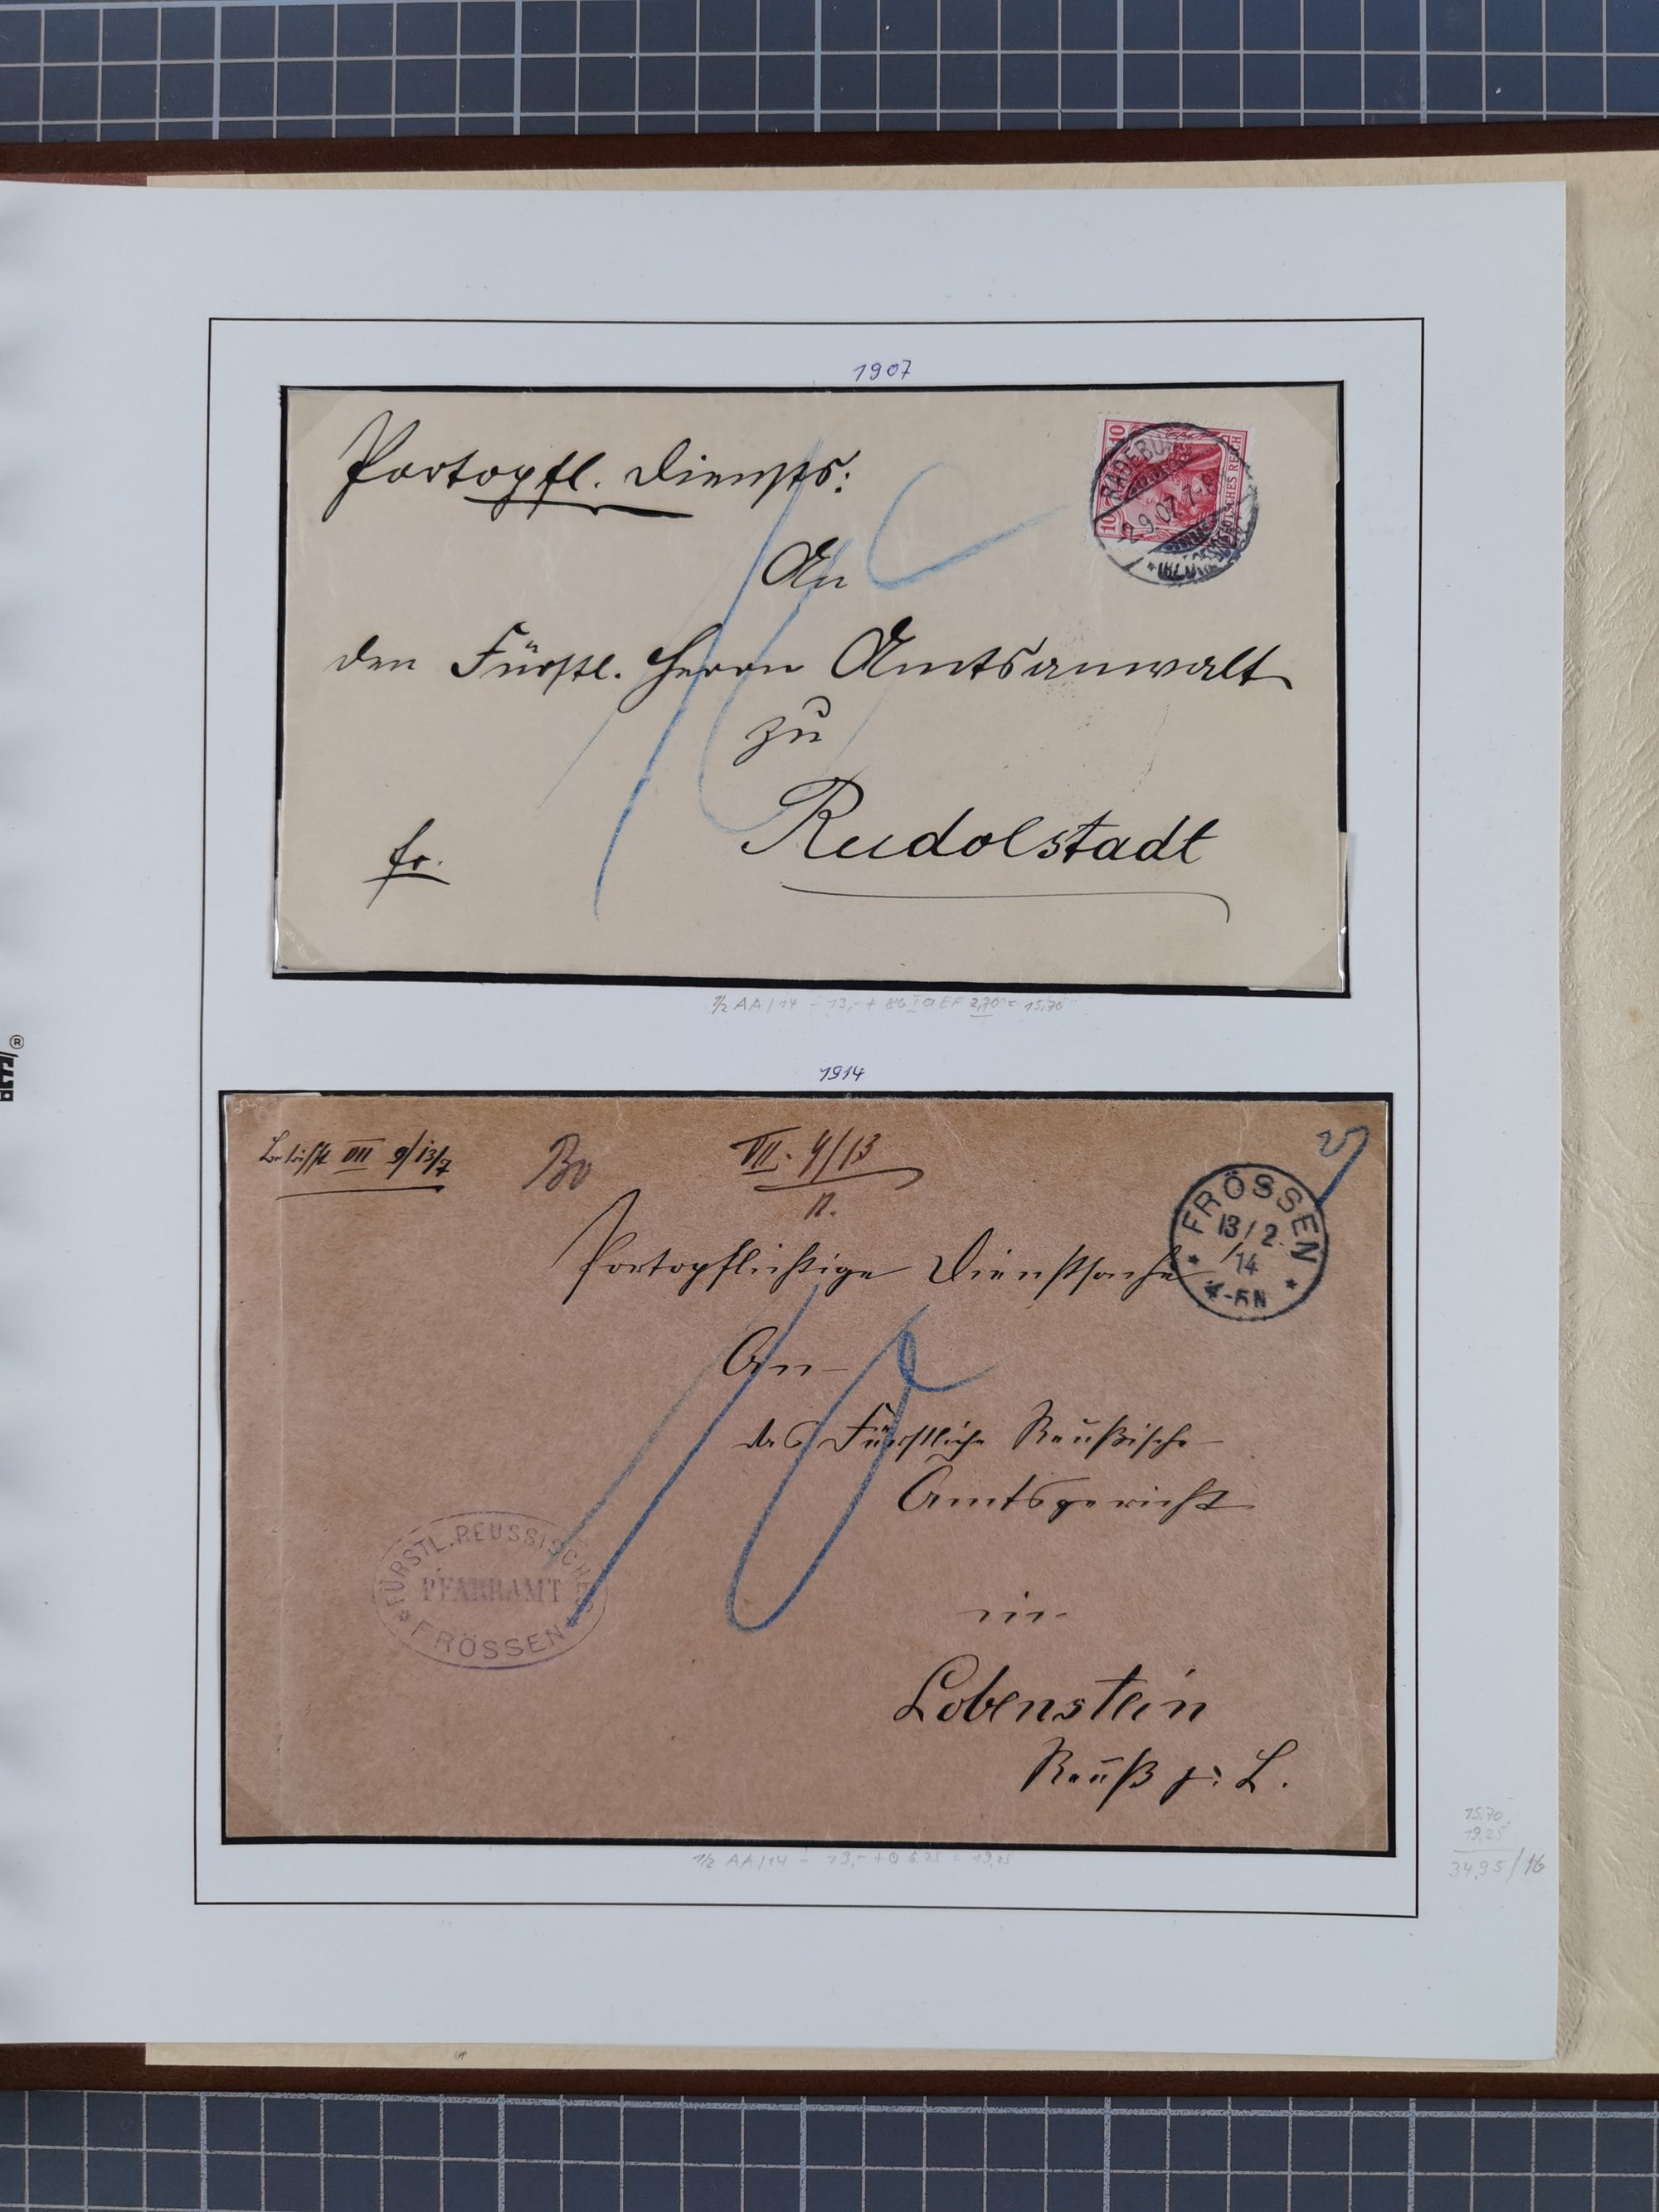 1907
Portopfl. Dienſts:
10
10
DEUTSCHES REICH
RADEBU
2.9.07. 7-8
An
den Fürstl. Herrn Amtsanwalt
zu
Rudolstadt
fr.
1/2 AA/14 - 13,- + 86 I a EF 2,70 = 15,70
1914
Betrifft VII 9/13/7
VII. 9/13
n.
FRÖSSEN
13/2
14
4-5N
Portopflichtige Dienstsache
An
das Fürstliche Reußische
Amtsgericht
10
in
FÜRSTL. REUSSISCHES
PFARRAMT
FRÖSSEN
Lobenstein
Reuß j. L.
1/2 AA/14 - 13,- + 6,25 = 19,25
15,70
19,25
34,95/16
®